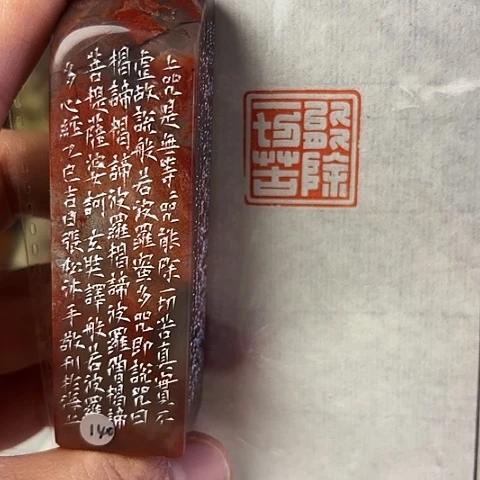 上咒是無等等咒能除一切苦真實不
虛故說般若波羅蜜多咒即說咒曰
揭諦揭諦波羅揭諦波羅僧揭諦
菩提薩婆訶玄奘譯般若波羅
多心經乙巳吉日張松冰手敬刊於滬上
能除
一切苦
140